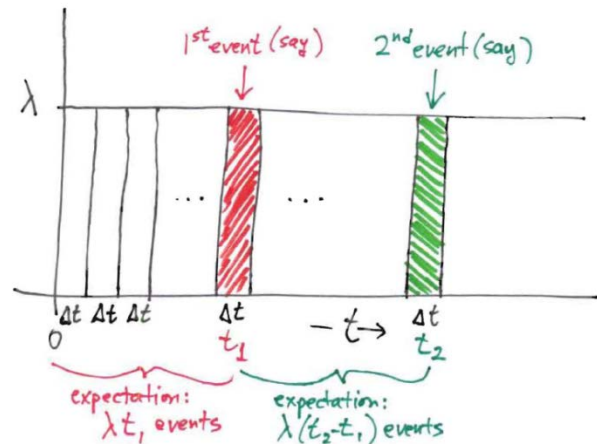 1st event (say)
2nd event (say)
λ
... ...
Δt Δt Δt Δt - t → Δt
0 t1 t2
expectation:
λt1 events
expectation:
λ(t2-t1) events